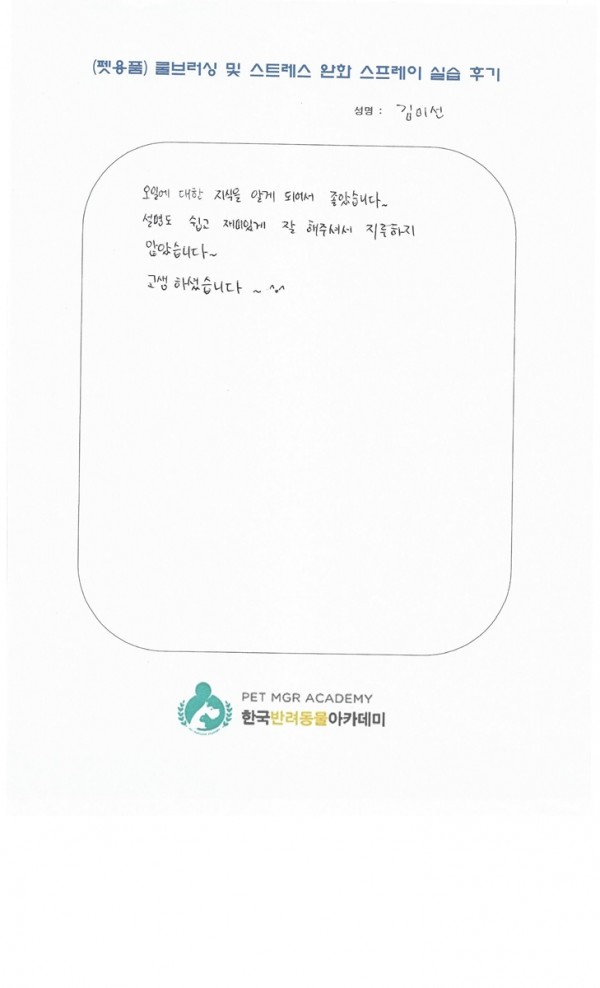 (펫용품) 룰브러싱 및 스트레스 완화 스프레이 실습 후기
성명 : 김미선
오일에 대한 지식을 알게 되어서 좋았습니다~
설명도 쉽고 재미있게 잘 해주셔서 지루하지
않았습니다~
고생 하셨습니다 ~ ^^
PET MGR ACADEMY
한국반려동물아카데미